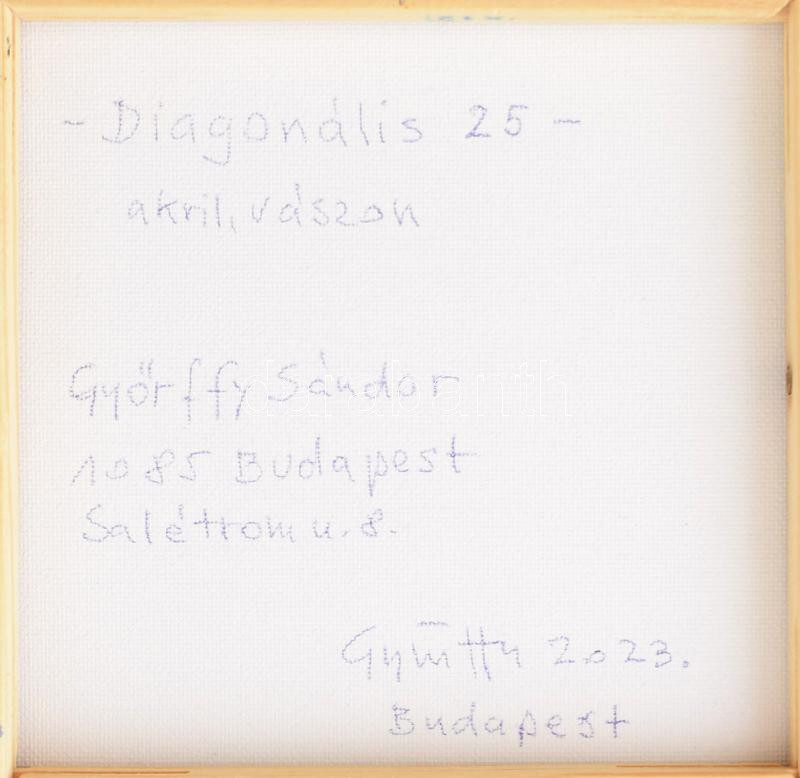 - Diagonális 25 -
akril, vászon
Győrffy Sándor
1085 Budapest
Salétrom u. 8.
Győrffy 2023.
Budapest